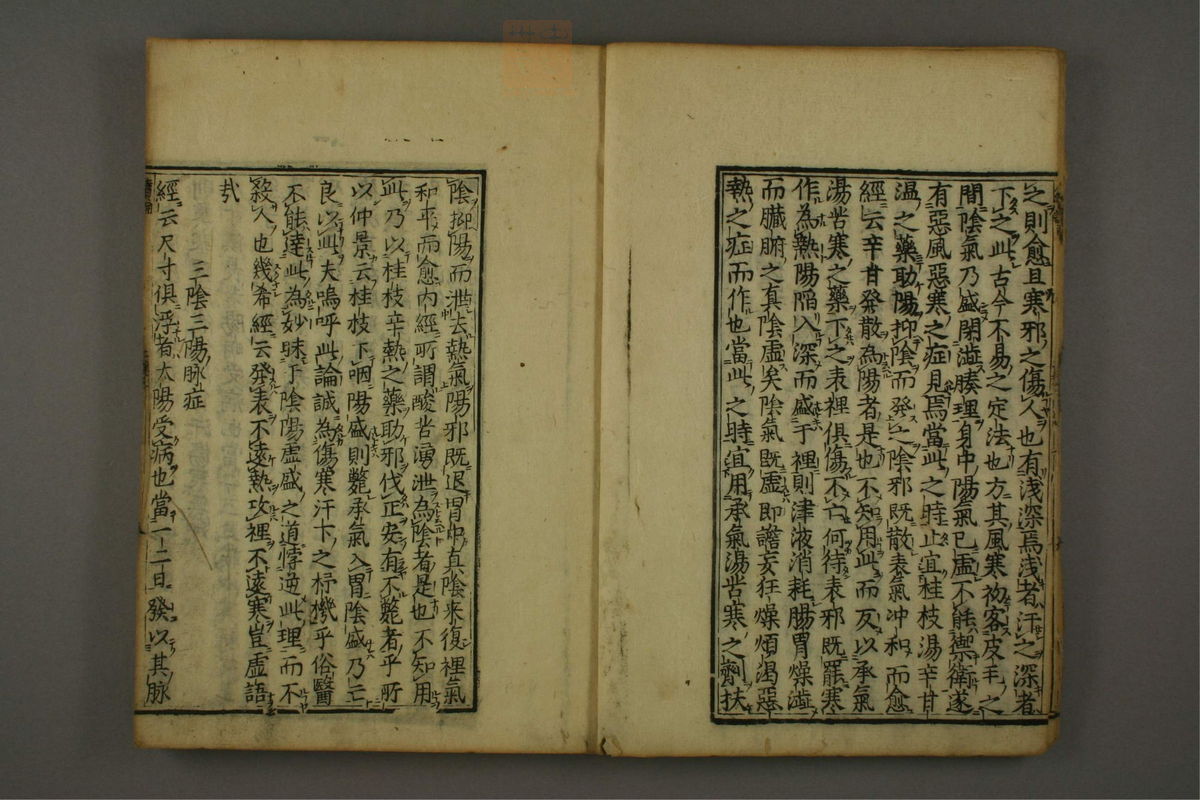 之則愈且寒邪之傷人也有浅深焉浅者汗之深者
下之此古今不易之定法也方其風寒初客皮毛之
間陰氣乃盛閉澁腠理身中陽氣已虛不能禦衛遂
有惡風惡寒之症見焉當此之時止宜桂枝湯辛甘
温之藥助陽抑陰而發之陰邪既散表氣冲和而愈
經云辛甘発散為陽者是也不知用此而反以承氣
湯苦寒之藥下之表裡俱傷不亡何待表邪既罷寒
作為熱陽陷入深而盛于裡則津液消耗腸胃燥澁
而臓腑之真陰虛矣陰氣既虛即譫妄狂燥煩渇惡
熱之症而作也當此之時宜用承氣湯苦寒之劑扶
陰抑陽而泄去熱氣陽邪既退胃中真陰来復裡氣
和平而愈内經所謂酸苦湧泄為陰者是也不知用
此乃以桂枝辛熱之藥助邪伐正安有不斃者乎所
以仲景云桂枝下咽陽盛則斃承氣入胃陰盛乃亡
良以此夫嗚呼此論誠為傷寒汗下之樞機乎俗醫
不能達此為妙昧于陰陽虛盛之道悖逆此理而不
殺人也幾希經云発表不遠熱攻裡不遠寒豈虛語
哉
三陰三陽脉症
經云尺寸俱浮者太陽受病也當一二日發以其脉